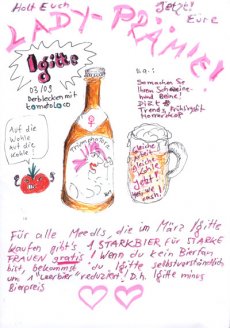 Holt Euch Jetzt! Eure
LADY-PRÄMIE!
Igitte
03.09
Derblecken mit
Tomatoloco
u.a.:
So machen Sie
Ihrem Schweine-
hund Beine!
DIÄT
Trends, Frühlingsfit
Horrorskop
Auf die
Wohle
auf die
Kohle
gleiche
Arbeit
gleiche
Kohle
Jetzt!
yes, we
cash!
Für alle Meedls, die im März Igitte
kaufen gibt's 1 STARKBIER für STARKE
FRAUEN gratis! Wenn du kein Bierfan
bist, bekommst du Igitte selbstverständlich
um 1 "Leerbier" reduziert! D.h. Igitte minus
Bierpreis